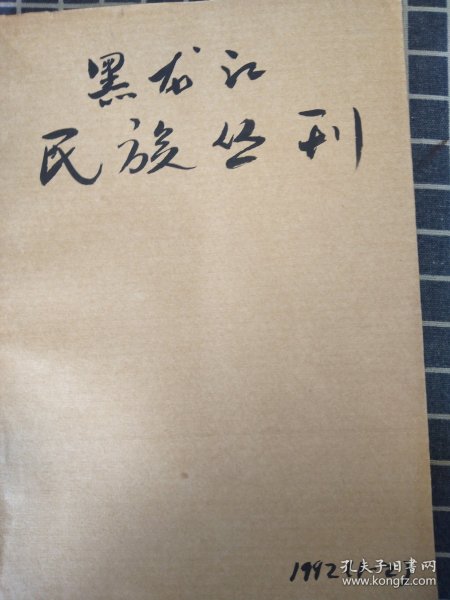 黑龙江
民族丛刊
1992(1-2)
孔夫子旧书网
www.kongfz.com